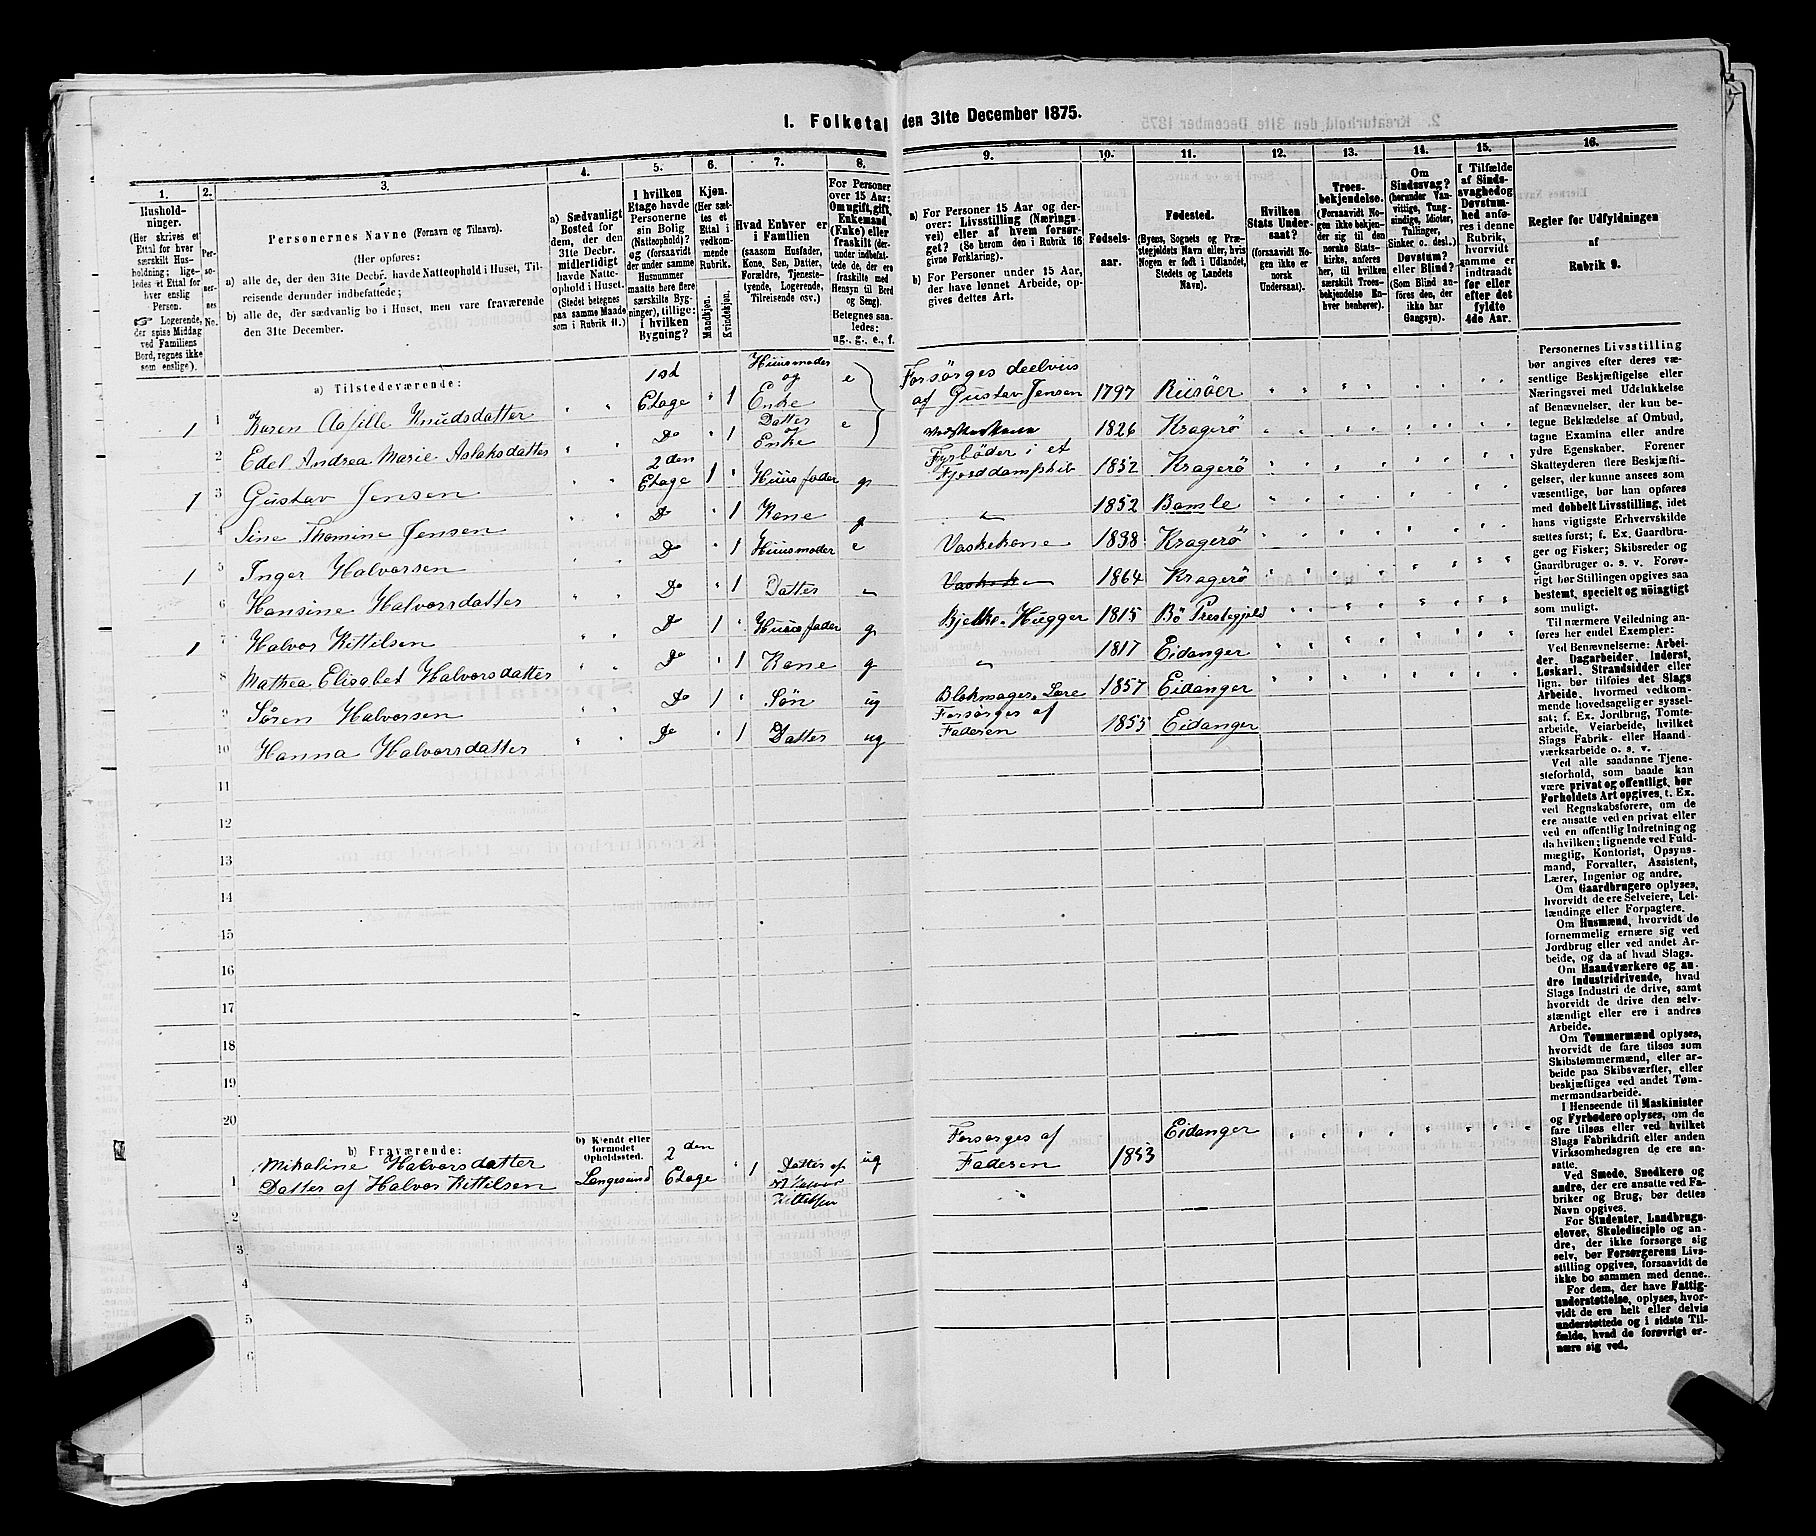 I. Folketal den 31te December 1875.
1. 2. 3. 4. 5. 6. 7. 8. 9. 10. 11. 12. 13. 14. 15. 16.
Husholdninger.
(Her skrives et Ettal for hver særskilt Husholdning; ligeledes et Ettal for hver enslig Person.
☞ Logerende, der spise Middag ved Familiens Bord, regnes ikke som enslige).
Personernes No.
Personernes Navne (Fornavn og Tilnavn).
(Her opføres:
a) alle de, der den 31te Decbr. havde Natteophold i Huset, Tilreisende derunder indbefattede;
b) alle de, der sædvanlig bo i Huset, men vare fraværende den 31te December.
a) Sædvanligt Bosted for dem, der den 31te Decbr. midlertidigt havde Natteophold i Huset. (Stedet betegnes paa samme Maade som i Rubrik 11.)
I hvilken Etage havde Personerne sin Bolig (Natteophold)? og (forsaavidt der under samme Husnummer maatte høre flere særskilte Bygninger), tillige: i hvilken Bygning?
Kjøn. (Her sættes et Ettal i vedkommende Rubrik.
Mandkjøn. Kvindekjøn.
Hvad Enhver er i Familien (saasom Husfader, Kone, Søn, Datter, Forældre, Tjenestetyende, Logerende, Tilreisende osv.)
For Personer over 15 Aar: Om ugift, gift, Enkemand (Enke) eller fraskilt (derunder indbefattede de, der ere fraskilte med Hensyn til Bord og Seng). Betegnes saaledes: ug., g., e., f.
a) For Personer 15 Aar og derover: Livsstilling (Næringsvei) eller af hvem forsørget? (Se herom den i Rubrik 16 givne Forklaring).
b) For Personer under 15 Aar, der have lønnet Arbeide, opgives dettes Art.
Fødselsaar.
Fødested. (Byens, Sognets og Præstegjeldets Navn eller, hvis Nogen er født i Udlandet, Stedets og Landets Navn).
Hvilken Stats Undersaat? (forsaavidt Nogen ikke er norsk Undersaat).
Troesbekjendelse. (Forsaavidt Nogen ikke bekjender sig til den norske Statskirke, anføres her, til hvilken særskilt Troesbekjendelse Enhver henhører).
Om Sindssvag? (herunder Vanvittige, Tungsindige, Idioter, Tullinger, Sinker o. desl.) Døvstum? eller Blind? (Som Blind anføres den, der ikke har Gangsyn).
I Tilfælde af Sindssvaghed og Døvstumhed anføres i denne Rubrik, hvorvidt samme er indtraadt før eller efter det fyldte 4de Aar.
Regler for Udfyldningen af Rubrik 9.
a) Tilstedeværende:
1 1 Karen Knudsdatter " " 1st Etage " 1 Huusmoder og Enke e Forsørges deelviis af Gustav Jensen 1797 Riisöer " " " " "
2 Edel Andrea Marie Aslaksdatter " " Do " 1 Datter og Enke e 1826 Kragerö " " " " "
1 3 Gustav Jensen " " 2den Etage 1 " Huusfader g Fyrböder i et Fjorddampskib 1852 Kragerö " " " " "
4 Sine Thomine Jensen " " Do " 1 Kone g " 1852 Bamle " " " " "
1 5 Inger Halvorsen " " Do " 1 Huusmoder e Vaskekone 1838 Kragerö " " " " "
6 Hansine Halvorsdatter " " Do " 1 Datter " " 1864 Kragerö " " " " "
1 7 Halvor Kittilsen " " Do 1 " Huusfader g Bjelke-Hugger 1815 Bö Prestegjeld " " " " "
8 Mathea Elisabet Halvorsdatter " " Do " 1 Kone g " 1817 Eidanger " " " " "
9 Sören Halvorsen " " Do 1 " Sön ug Blokmager Lære 1857 Eidanger " " " " "
10 Hanna Halvorsdatter " " Do " 1 Datter ug Forsörges af Faderen 1855 Eidanger
11
12
13
14
15
16
17
18
19
20
b) Fraværende:
b) Kjendt eller formodet Opholdssted.
1 Mikaline Halvorsdatter Datter af Halvor Kittilsen Langesund 2den Etage " 1 Datter af Halvor Kittilsen ug Forsörges af Faderen 1853 Eidanger " " " " "
2
3
4
5
6
Personernes Livsstilling
bør angives efter deres væ-
sentlige Beskjæftigelse eller
Næringsvei med Udelukkelse
af Benævnelser, der kun be-
tegne Beklædelse af Ombud,
tagne Examina eller andre
ydre Egenskaber. Forener
Skatteyderen flere Beskjæfti-
gelser, der kunne ansees som
væsentlige, bør han opføres
med dobbelt Livsstilling, idet
hans vigtigste Erhvervskilde
sættes først; f. Ex. Gaardbru-
ger og Fisker; Skibsreder og
Gaardbruger o. s. v. Forøv-
rigt bør Stillingen opgives saa
bestemt, specielt og nøiagtigt
som muligt.
Til nærmere Veiledning an-
føres her endel Exempler:
Ved Benævnelserne: Arbei-
der, Dagarbeider, Inderst,
Løskarl, Strandsidder eller
lign. bør tilføies det Slags
Arbeide, hvormed vedkom-
mende hovedsagelig er syssel-
sat; f. Ex. Jordbrug, Tomte-
arbeide, Veiarbeide, hvilket
Slags Fabrik- eller Haand-
værksarbeide o. s. v.
Ved alle saadanne Tjene-
steforhold, som baade kan
være privat og offentligt, bør
Forholdets Art opgives, t. Ex.
ved Regnskabsførere, om de
ere ansatte ved en privat eller
ved en offentlig Indretning og
da hvilken; lignende ved Fuld-
mægtig, Kontorist, Opsyns-
mand, Forvalter, Assistent,
Lærer, Ingeniør og andre.
Om Gaardbrugere oplyses,
hvorvidt de ere Selveiere, Lei-
lændinge eller Forpagtere.
Om Husmænd, hvorvidt de
fornemmelig ernære sig ved
Jordbrug eller ved andet Ar-
beide, og da af hvad Slags.
Om Haandværkere og an-
dre Industridrivende, hvad
Slags Industri de drive, samt
hvorvidt de drive den selv-
stændigt eller ere i andres
Arbeide.
Om Tømmermænd oplyses,
hvorvidt de fare tilsøs som
Skibstømmermænd, eller ar-
beide paa Skibsværfter, eller
beskjæftiges ved andet Tøm-
mermandsarbeide.
I Henseende til Maskinister
og Fyrbødere oplyses, om de
fare tilsøs eller ved hvilket
Slags Fabrikdrift eller anden
Virksomhedsgren de ere an-
satte.
Ved Smede, Snedkere og
andre, der ere ansatte ved Fa-
briker og Brug, bør dettes
Navn opgives.
For Studenter, Landbrugs-
elever, Skoledisciple og an-
dre, der ikke forsørge sig
selv, bør Forsørgerens Livs-
stilling opgives, forsaavidt de
ikke bo sammen med denne.
For dem, der have Fattig-
understøttelse, oplyses, hvor-
vidt de ere helt eller delvis
understøttede og i sidste Til-
fælde, hvad de forøvrigt er-
nære sig ved.